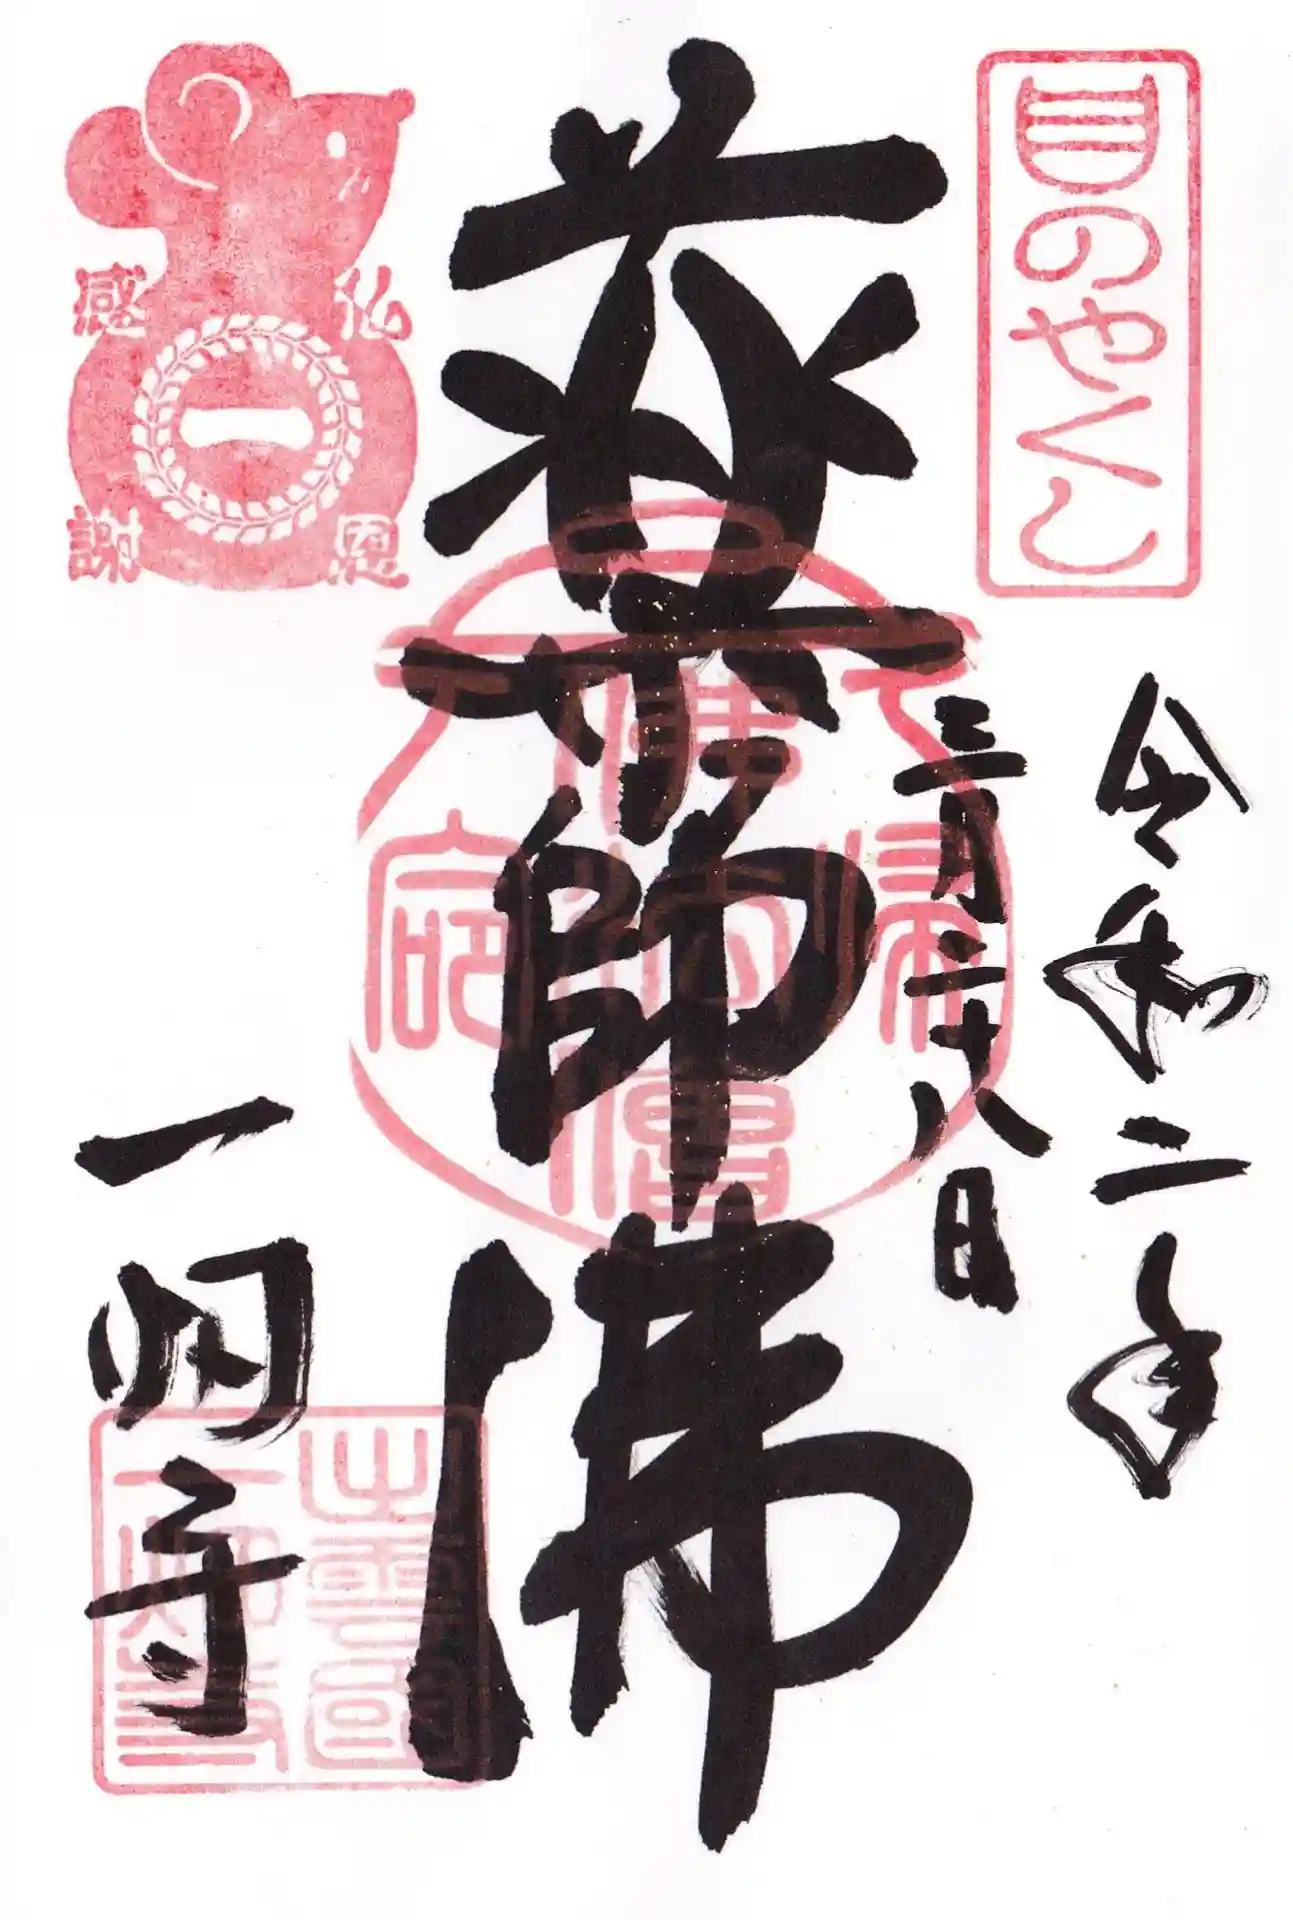 目のやくし
令和二年
三月二十八日
薬師佛
仏恩
感謝
一
一畑寺